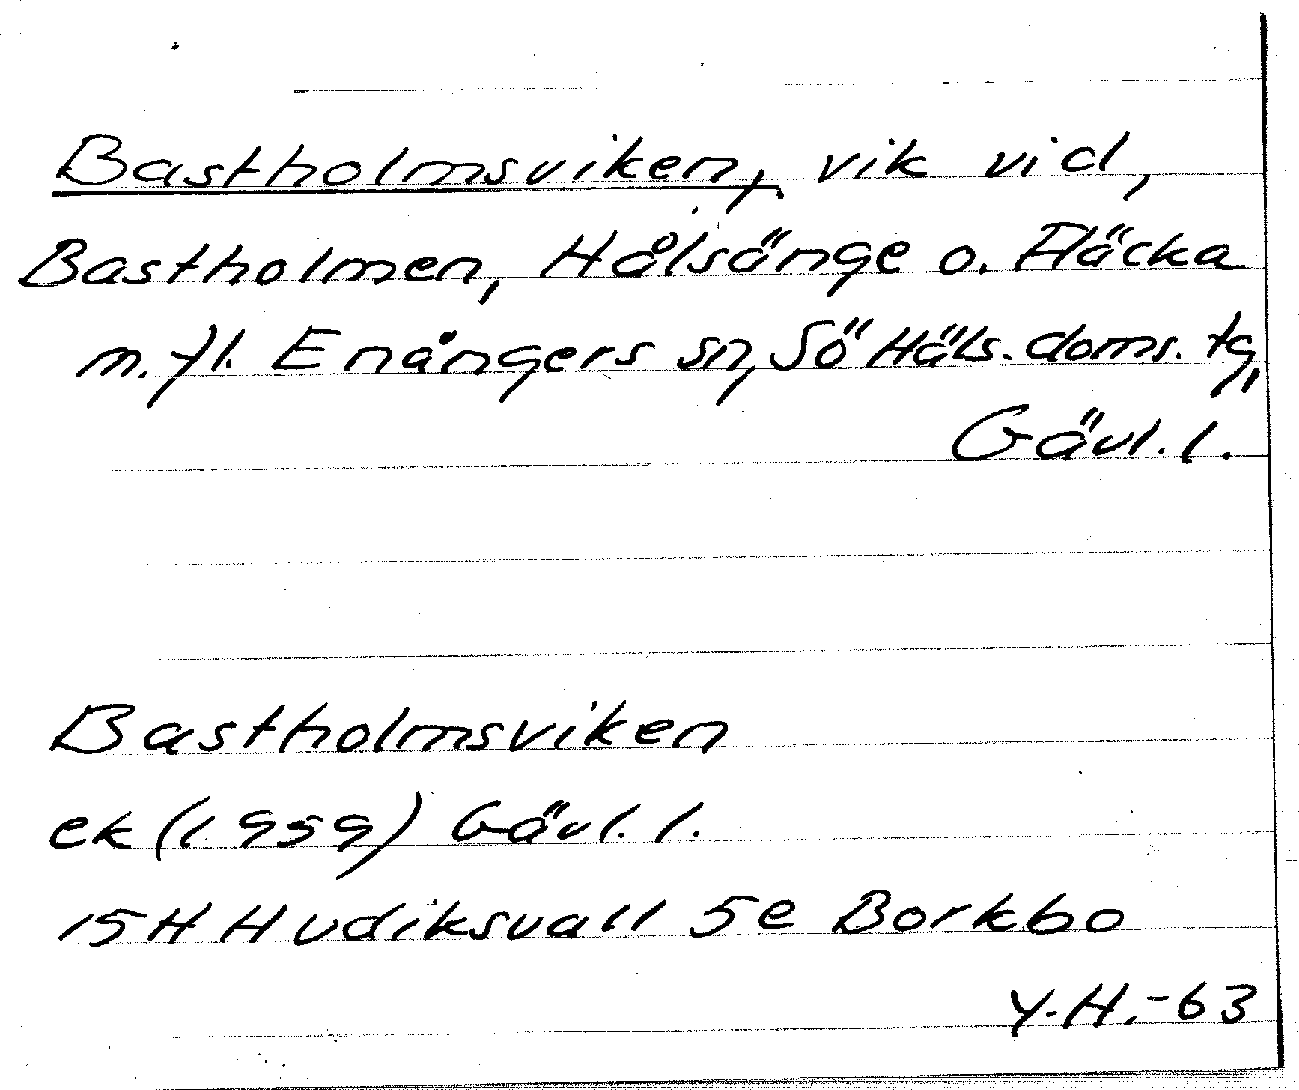 Bastholmsviken, vik vid,
Bastholmen, Hålsänge o. Fläcka
m. fl. Enångers sn, Sö Häls. doms. tg,
Gävl. l.
Bastholmsviken
ek (1959) Gävl. l.
15H Hudiksvall 5e Borkbo
Y.H.-63